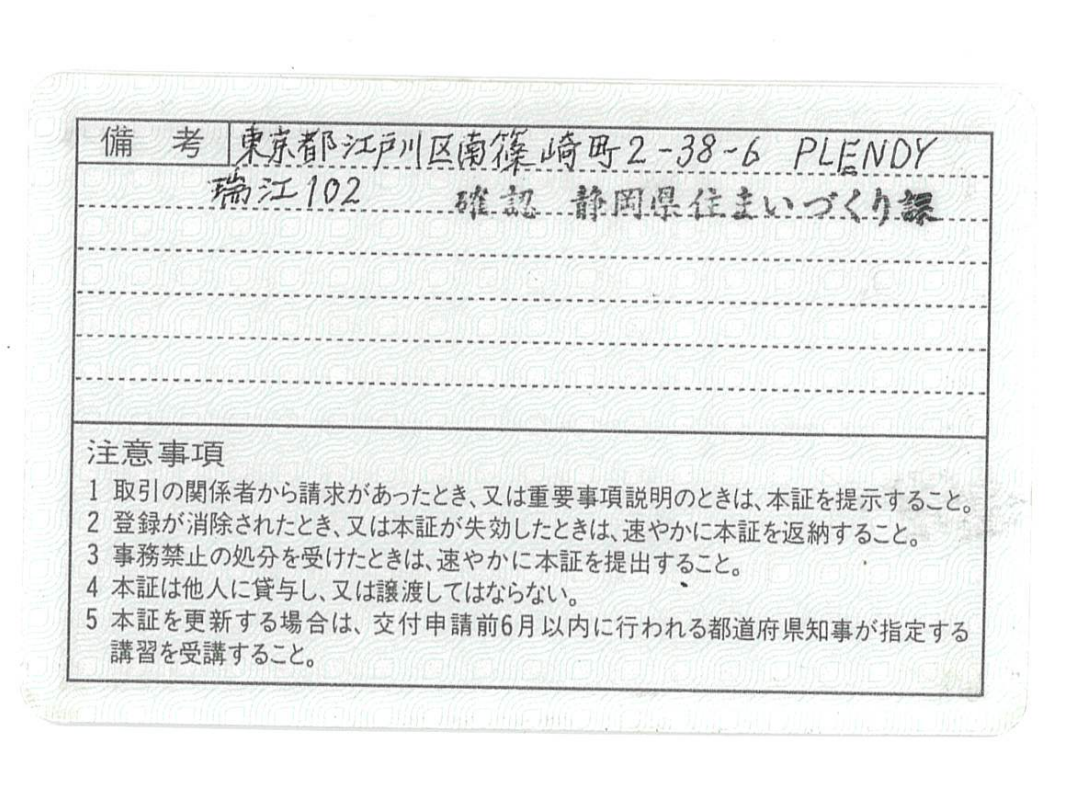 備考 東京都江戸川区南篠崎町2-38-6 PLENDY
瑞江102 確認 静岡県住まいづくり課
注意事項
1 取引の関係者から請求があったとき、又は重要事項説明のときは、本証を提示すること。
2 登録が消除されたとき、又は本証が失効したときは、速やかに本証を返納すること。
3 事務禁止の処分を受けたときは、速やかに本証を提出すること。
4 本証は他人に貸与し、又は譲渡してはならない。
5 本証を更新する場合は、交付申請前6月以内に行われる都道府県知事が指定する
講習を受講すること。